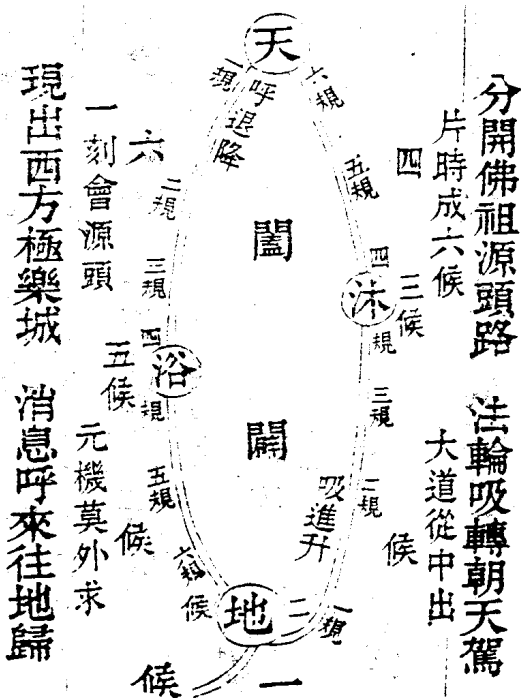 分開佛祖源頭路　法輪吸轉朝天駕
片時成六候　大道從中出
四候
三候
天
六規
五規
四規
沐
三規
二規
一規
吸進升
闔闢
呼退降
一規
二規
三規
四規
浴
五規
六規
地
二候
一候
五候
六候
一刻會源頭　元機莫外求
現出西方極樂城　消息呼來往地歸